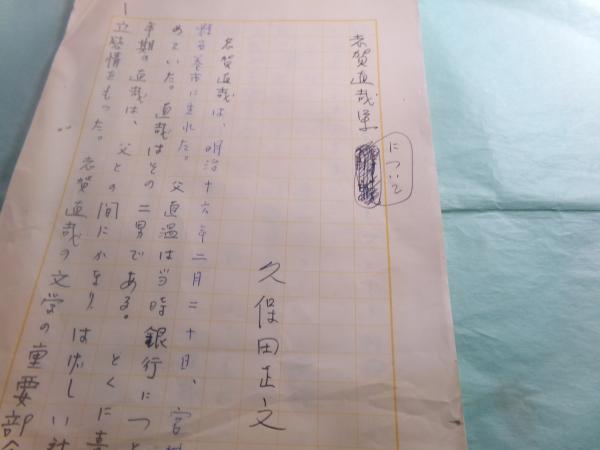 志賀直哉
について
久保田正文
志賀直哉は、明治十六年二月二十日、宮城
県石巻市に生れた。父直温は当時銀行につと
めていた。直哉はその二男である。とくに
年期の直哉は、父との間にかなりはげしい
立感情をもった。志賀直哉の文学の重要部